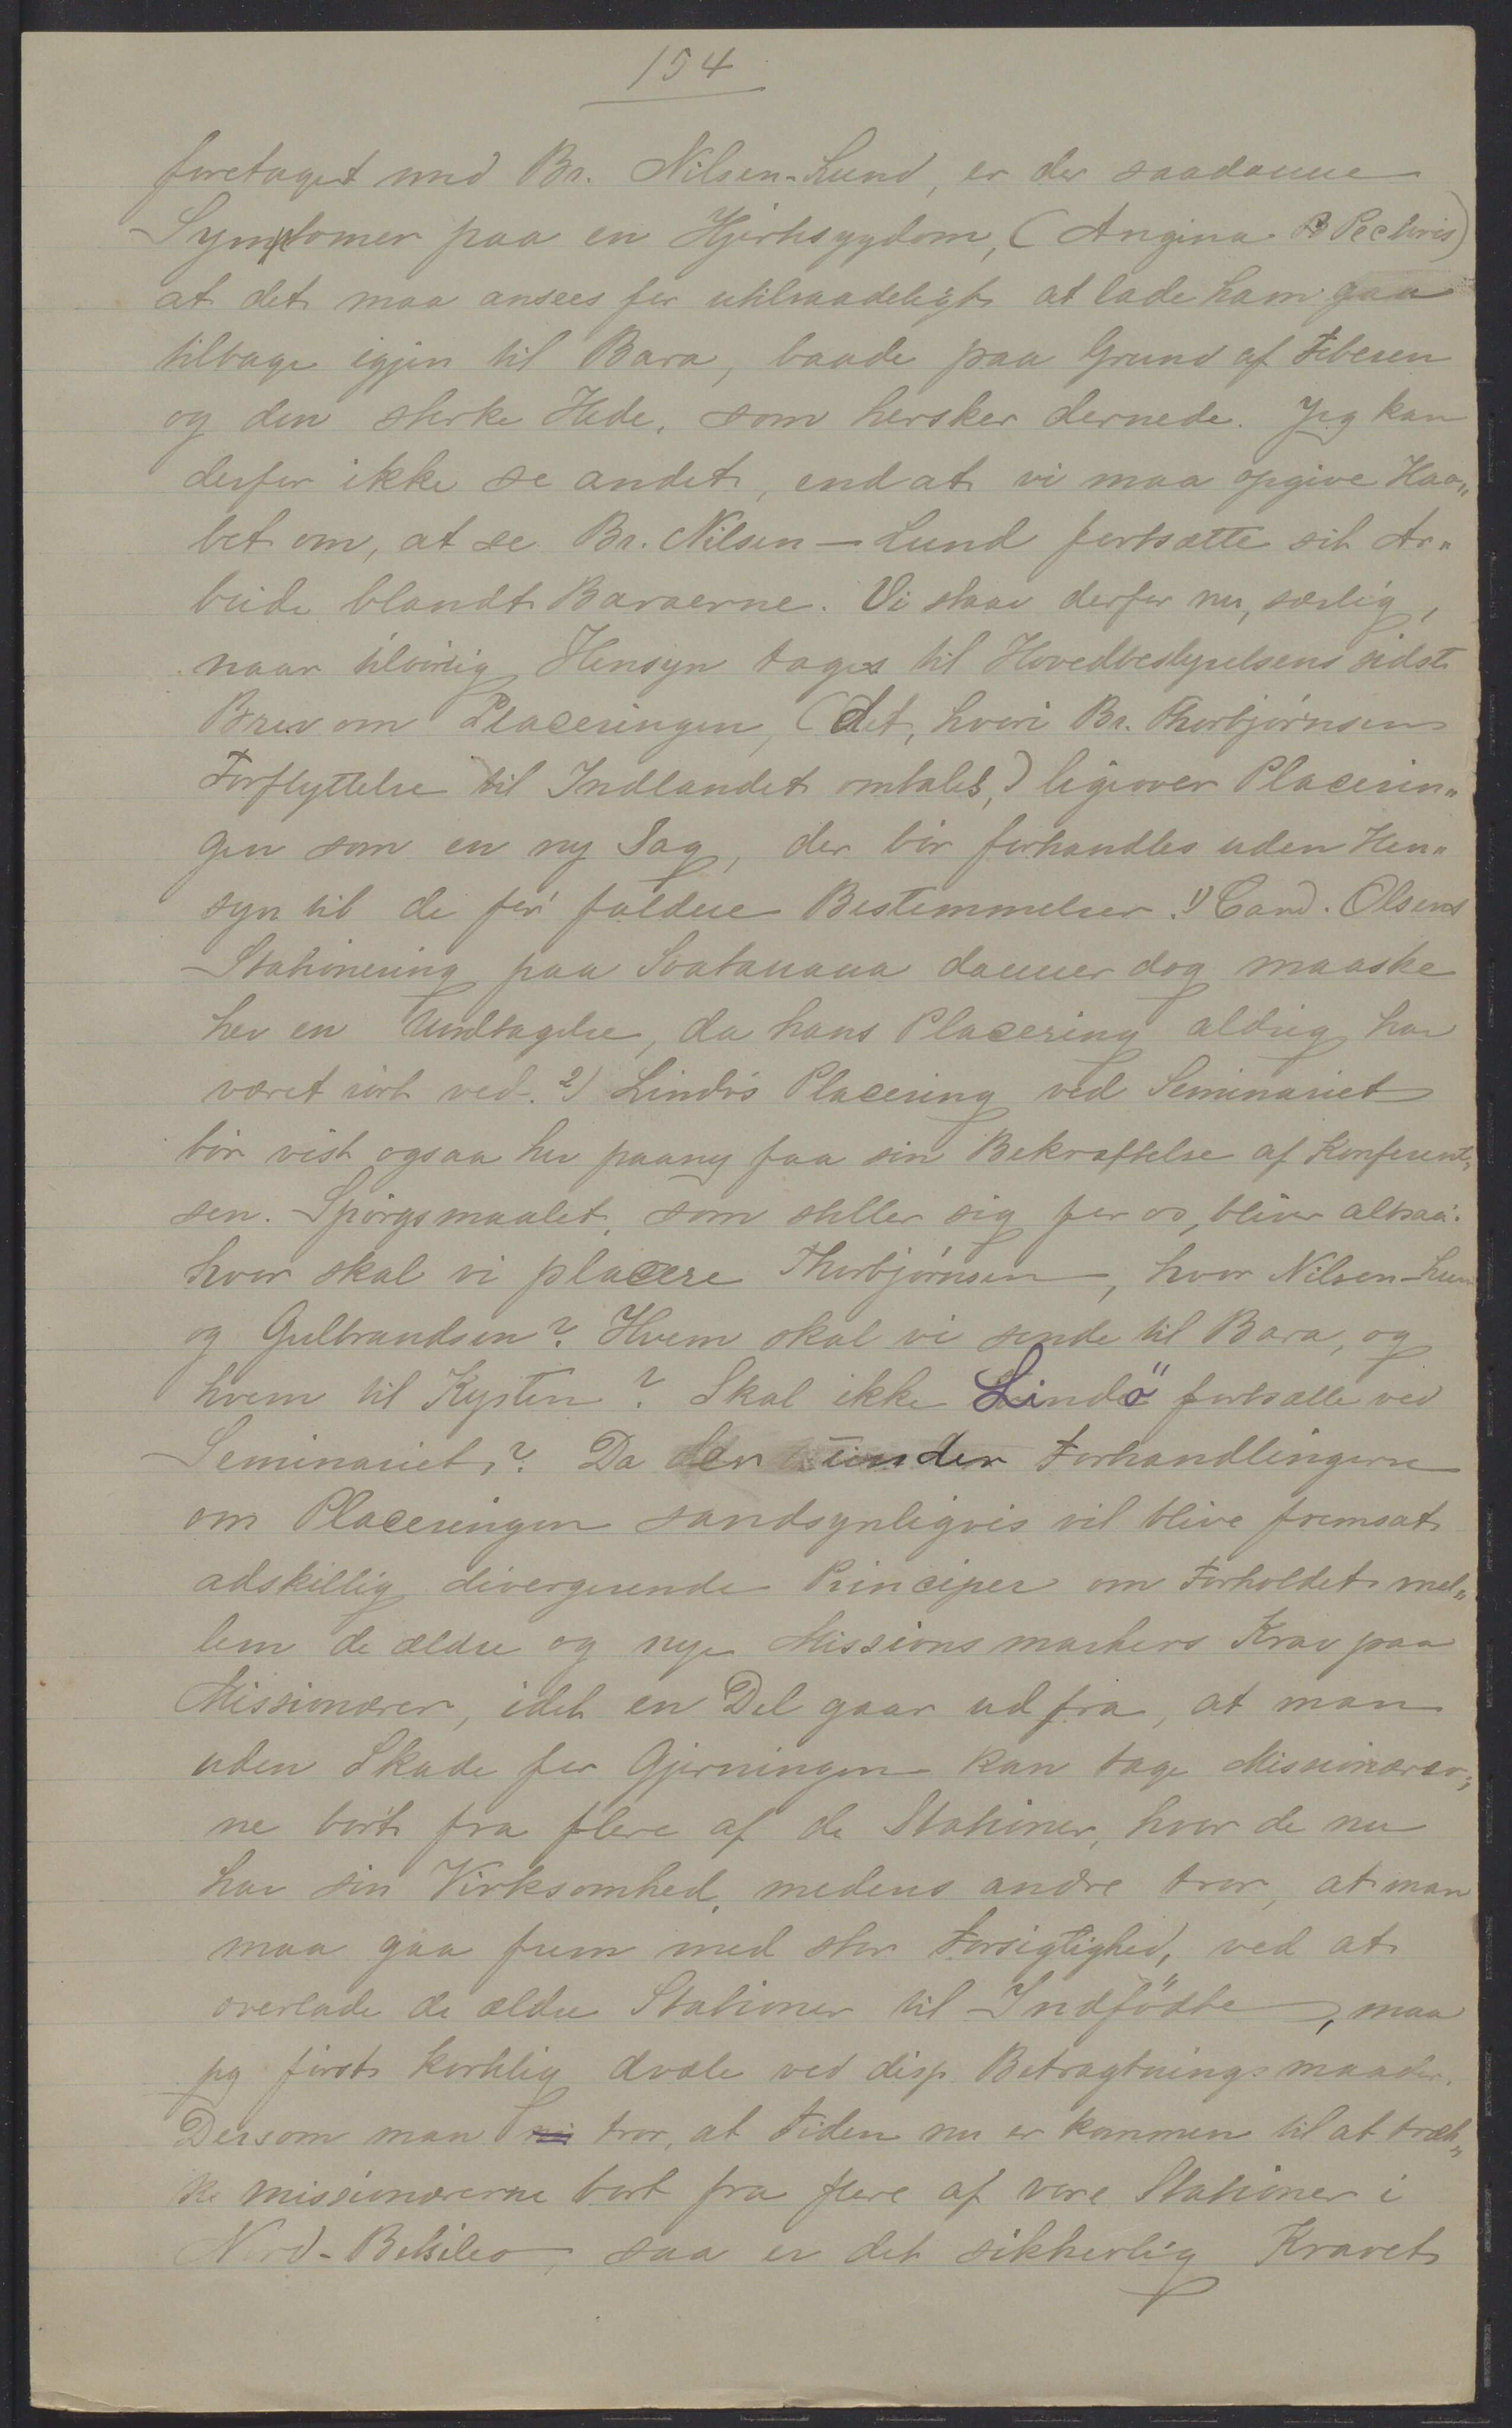 154
foretaget med Br. Nilsen-Lund, er der saadanne
Symptomer paa en Hjertesygdom, (Angina Pectoris)
at det maa ansees for utilraadeligt at lade ham gaa
tilbage igjen til Bara, baade paa Grund af Feberen
og den sterke Hede, som hersker dernede. Jeg kan
derfor ikke se andet, end at vi maa opgive Haa„
bet om, at se Br. Nilsen-Lund fortsætte sit Ar„
beide blandt Baraerne. Vi staar derfor nu, særlig,
naar tilbørlig Hensyn tages til Hovedbestyrelsens sidste
Brev om Placeringen, (det, hvori Br. Thorbjørnsens
Forflyttelse til Indlandet omtales,) ligeover Placerin„
gen som en ny Sag, der bør forhandles uden Hen„
syn til de før fattede Bestemmelser. 1) Cand. Olsens
Stationering paa Soatanana danner dog maaske
her en Undtagelse, da hans Placering aldrig har
været rørt ved. 2) Lindøs Placering ved Seminariet
bør vist ogsaa her paany faa sin Bekræftelse af Konferent„
sen. Spørgsmaalet, som stiller sig for os, bliver altsaa:
hvor skal vi placere Thorbjørnsen, hvor Nilsen-Lund
og Gulbrandsen? Hvem skal vi sende til Bara, og
hvem til Kysten? Skal ikke Lindö fortsætte ved
Seminariet? Da der under Forhandlingerne
om Placeringen sandsynligvis vil blive fremsat
adskillig divergerende Principer om Forholdet mel„
lem de ældre og nye Missionsmarkers Krav paa
Missionærer, idet en Del gaar ud fra, at man
uden Skade for Gjerningen kan tage Missionærer„
ne bort fra flere af de Stationer, hvor de nu
har sin Virksomhed, medens andre tror, at man
maa gaa frem med stor Forsigtighed, ved at
overlade de ældre Stationer til Indfödte, maa
jeg først kortelig dvæle ved disse Betragtningsmaader.
Dersom man tror, at Tiden nu er kommen til at træk„
ke missionærerne bort fra flere af vore Stationer i
Nord-Betsileo, saa er det sikkerlig Kravet